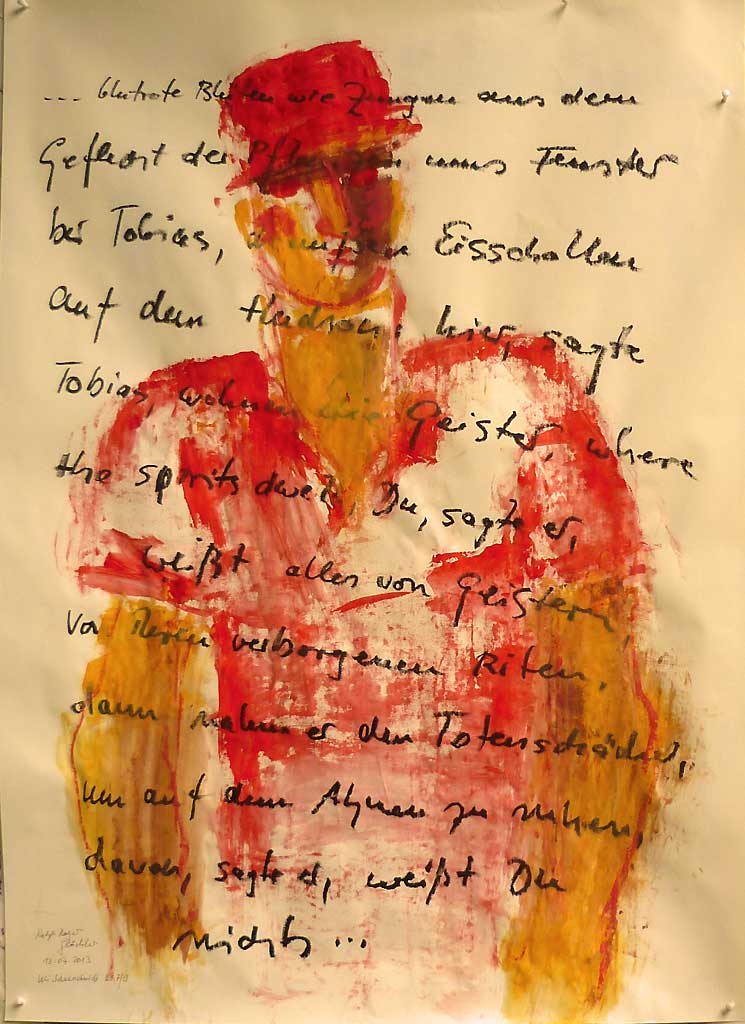 ... blutrote Blüten wie Zungen aus dem
Geflecht der Pflanzen ums Fenster
bei Tobias, draußen Eisschollen
auf dem Hudson, hier, sagte
Tobias, wohnen die Geister, where
the spirits dwell, Du, sagte er,
weißt alles von Geistern,
von deren verborgenen Riten,
dann nahm er den Totenschädel,
um auf dem Ahnen zu ruhen,
davon, sagte er, weißt Du
nichts ...
Ralph Roger
13.04.2013